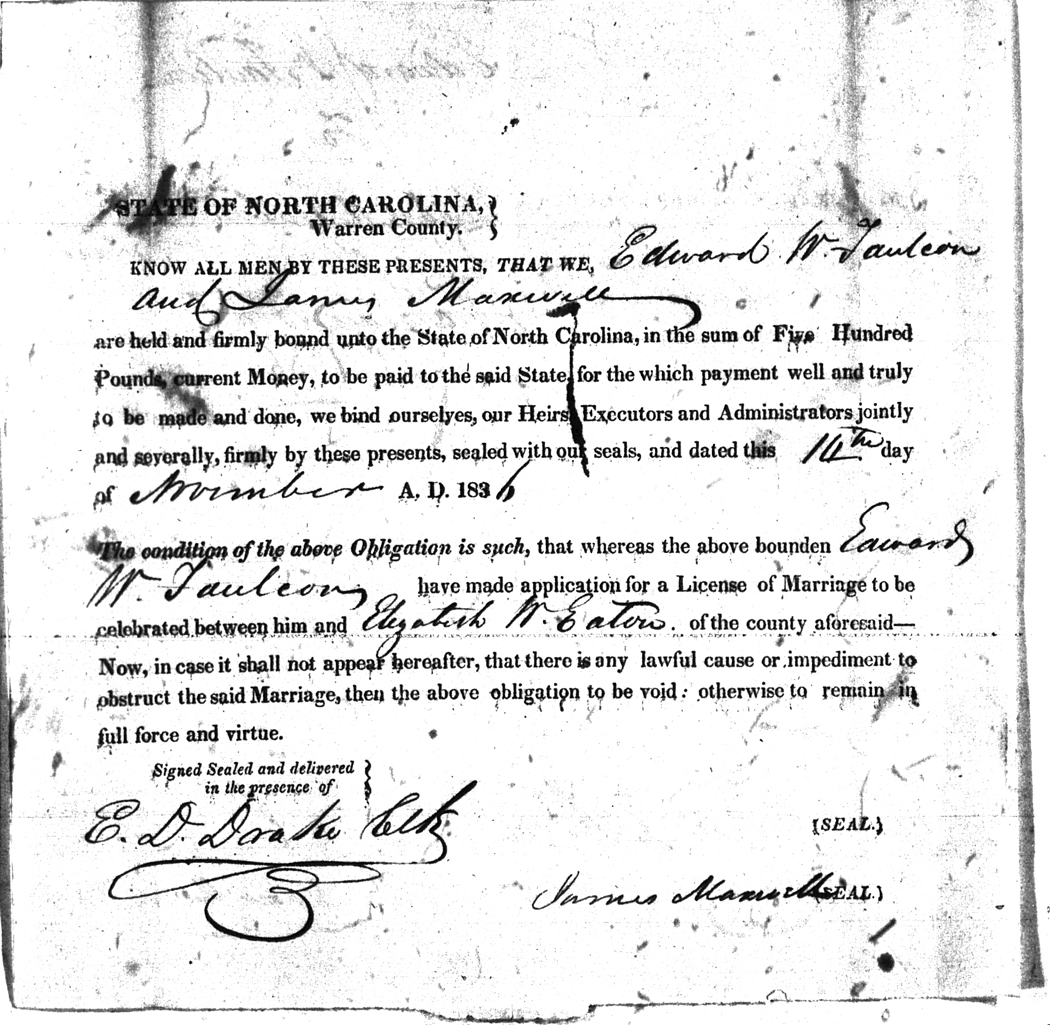 STATE OF NORTH CAROLINA, }
Warren County. }
KNOW ALL MEN BY THESE PRESENTS, THAT WE, Edward W. Faulcon
and James Maxwell
are held and firmly bound unto the State of North Carolina, in the sum of Five Hundred
Pounds, current Money, to be paid to the said State, for the which payment well and truly
to be made and done, we bind ourselves, our Heirs, Executors and Administrators jointly
and severally, firmly by these presents, sealed with our seals, and dated this 14th day
of November A. D. 1836
The condition of the above Obligation is such, that whereas the above bounden Edward
W. Faulcon have made application for a License of Marriage to be
celebrated between him and Elizabeth W. Eaton. of the county aforesaid—
Now, in case it shall not appear hereafter, that there is any lawful cause or impediment to
obstruct the said Marriage, then the above obligation to be void: otherwise to remain in
full force and virtue.
Signed Sealed and delivered }
in the presence of }
E. D. Drake Clk
(SEAL.)
James Maxwell (SEAL.)